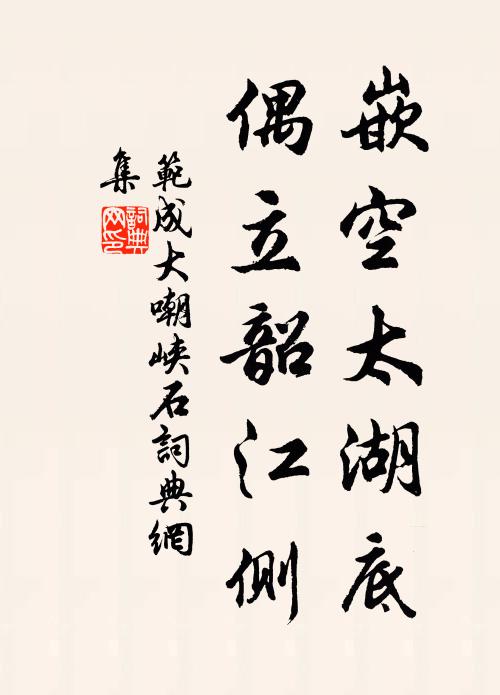 嵌空太湖底
偶立韶江側
範成大嘲峽石詞典網
集
詞典
网印